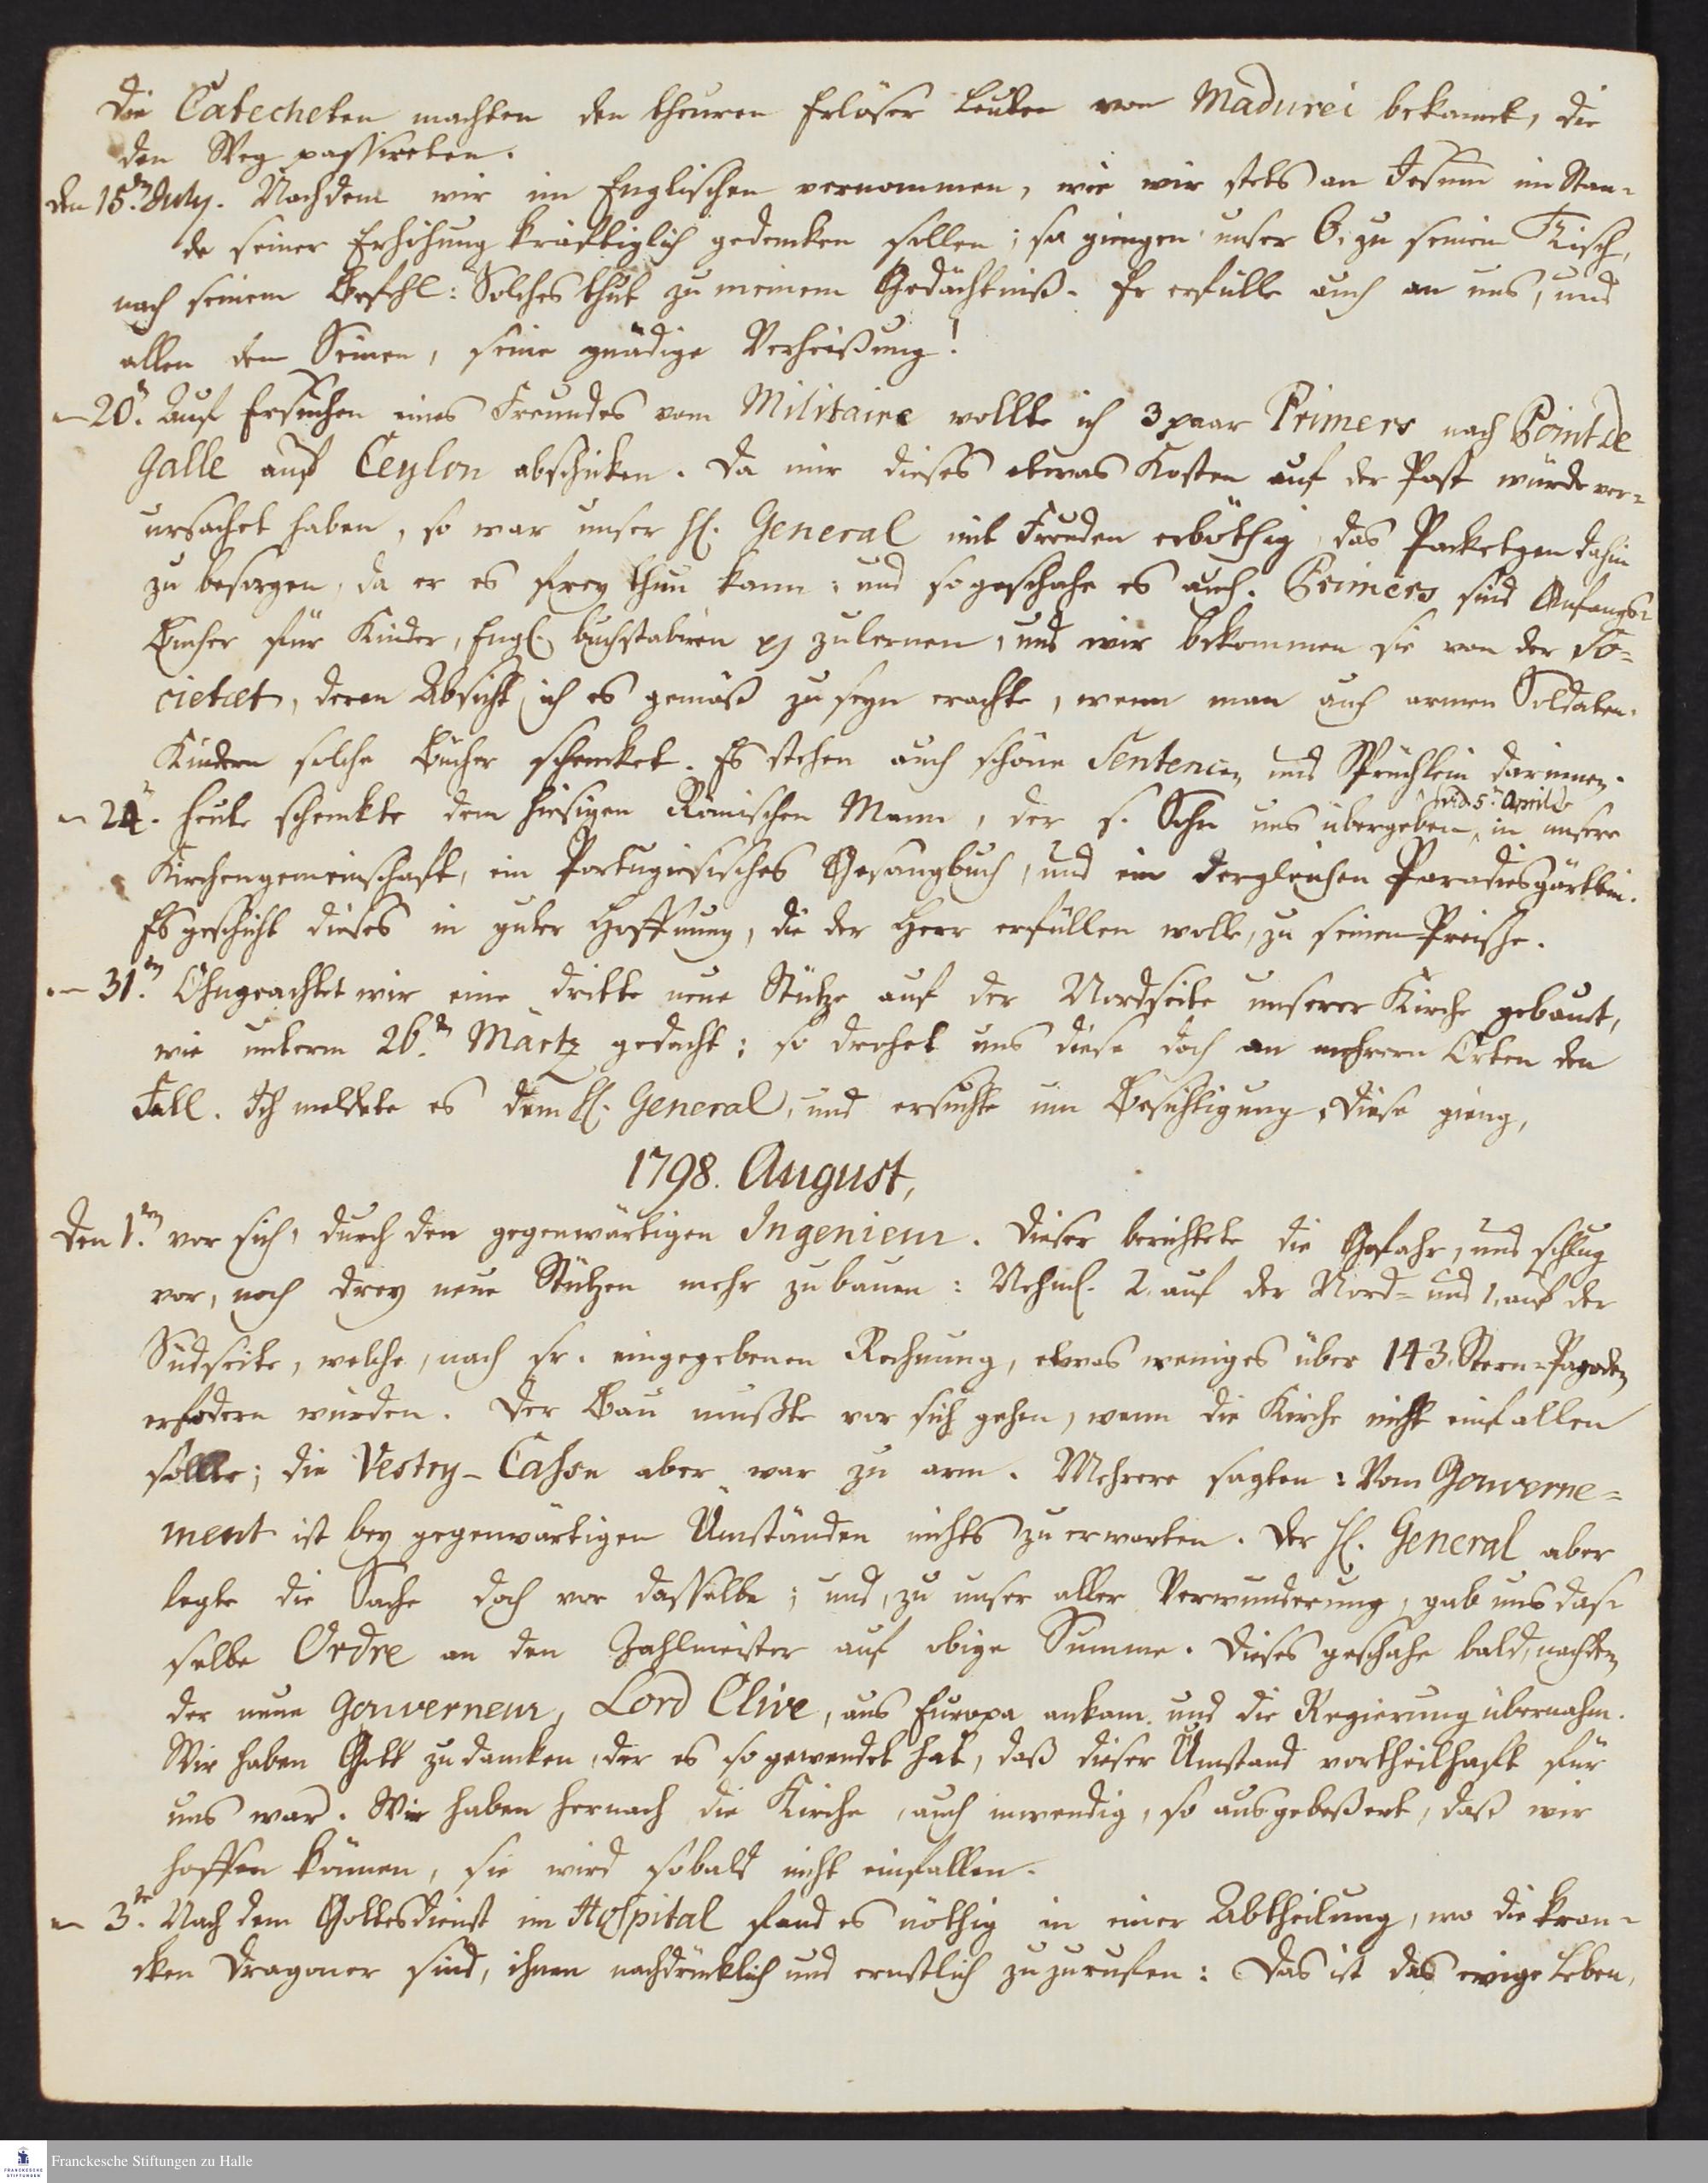 Die Catecheten machten den theuren Erlöser Leuten von Madurei bekannt, die
den Weg passireten.
den 15.ten July. Nachdem wir im Englischen vernommen, wie wir stets an Jesum im Stan-
de seiner Erhöhung kräftiglich gedencken sollen; so giengen unser 6. zu seinem Tisch,
nach seinem Befehl: Solches thut zu meinem Gedächtniß. Er erfülle auch an uns, und
allen den Seinen, seine gnädige Verheißung!
– 20.n Auf Ersuchen eines Freundes vom Militaire wollte ich 3 paar Primers nach Point de
Galle auf Ceylon abschicken. Da mir dieses etwas Kosten auf der Post würde ver-
ursachet haben, so war unser H. General mit Freuden erböthig, das Packetgen dahin
zu besorgen, da er es frey thun kann: und so geschahe es auch. Primers sind Anfangs-
Bücher für Kinder, Engl. buchstabiren pp zu lernen, und wir bekommen sie von der So-
cietæt, deren Absicht ich es gemäß zu seyn erachte, wenn man auch armen Soldaten-
Kindern solche Bücher schencket. Es stehen auch schöne Sentencen und Sprüchlein darinnen.
– 24.n Heute schenkte dem hiesigen Römischen Mann, der s. Sohn uns übergeben, in unsere
vid. 5.n April
Kirchengemeinschaft, ein Portugiesisches Gesangbuch, und ein dergleichen Paradiesgärtlein.
Es geschieht dieses in guter Hoffnung, die der Herr erfüllen wolle, zu seinem Preise.
– 31.ten Ohngeachtet wir eine dritte neue Stütze auf der Nordseite unserer Kirche gebaut,
wie unterm 26.ten Märtz gedacht; so drohet uns diese doch an mehrern Orten den
Fall. Ich meldete es dem H. General, und ersuchte um Besichtigung. Diese gieng,
1798. August,
Den 1.ten vor sich, durch den gegenwärtigen Ingenieur. Dieser berichtete die Gefahr, und schlug
vor, noch drey neue Stützen mehr zu bauen: Nehml. 2. auf der Nord- und 1. auf der
Südseite, welche, nach sr. eingegebenen Rechnung, etwas weniges über 143. Stern-Pagoden
erfodern würden. Der Bau mußte vor sich gehen, wenn die Kirche nicht einfallen
sollte; die Vestry-Casse aber war zu arm. Mehrere sagten: Vom Gouverne-
ment ist bey gegenwärtigen Umständen nichts zu erwarten. Der H. General aber
legte die Sache doch vor dasselbe; und, zu unser aller Verwunderung, gab uns das-
selbe Ordre an den Zahlmeister auf obige Summe. Dieses geschahe bald, nachdem
der neue Gouverneur, Lord Clive, aus Europa ankam und die Regierung übernahm.
Wir haben Gott zu dancken, der es so gewendet hat, daß dieser Umstand vortheilhaft für
uns war. Wir haben hernach die Kirche, auch inwendig, so ausgebeßert, daß wir
hoffen können, sie wird sobald nicht einfallen.
– 3.ten Nach dem Gottesdienst im Hospital fand es nöthig in einer Abtheilung, wo die kran-
cken Dragoner sind, ihnen nachdrücklich und ernstlich zuzurufen: Das ist das ewige Leben,
Franckesche Stiftungen zu Halle